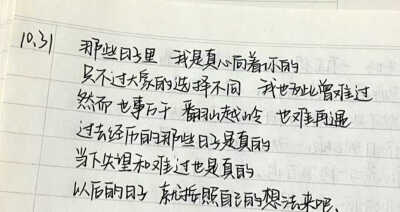 10.31 那些日子里 我是真心向着你的
只不过大家的选择不同 我也为此曾难过
然而 也事万千 翻山越岭 也难再遇
过去经历的那些日子是真的
当下失望和难过也是真的
以后的日子 就按照自己的想法来吧、